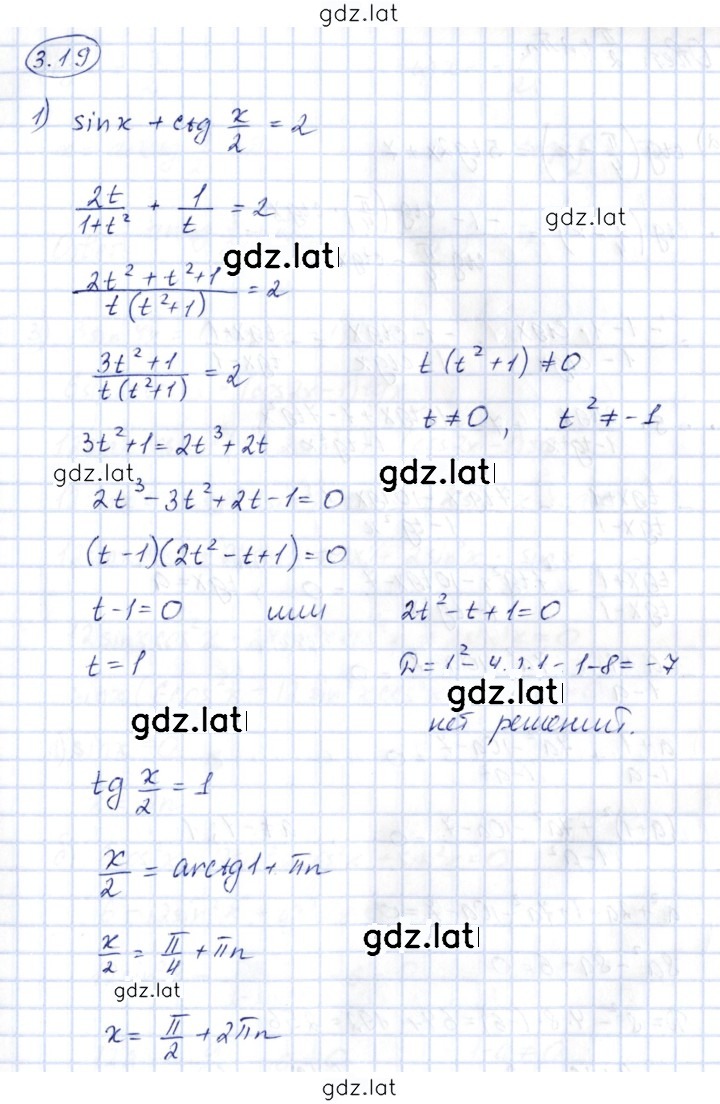 gdz.lat
3.19
1) sin x + ctg x/2 = 2
2t/(1+t²) + 1/t = 2
gdz.lat
gdz.lat
(2t² + t² + 1)/(t(t²+1)) = 2
(3t²+1)/(t(t²+1)) = 2 t(t²+1) ≠ 0
t ≠ 0, t² ≠ -1
3t²+1 = 2t³ + 2t
gdz.lat gdz.lat
2t³ - 3t² + 2t - 1 = 0
(t-1)(2t² - t + 1) = 0
t-1=0 или 2t² - t + 1 = 0
t = 1 D = 1² - 4·2·1 = 1-8 = -7
gdz.lat
gdz.lat нет решений.
tg x/2 = 1
x/2 = arctg 1 + πn
gdz.lat
x/2 = π/4 + πn
gdz.lat
x = π/2 + 2πn
gdz.lat